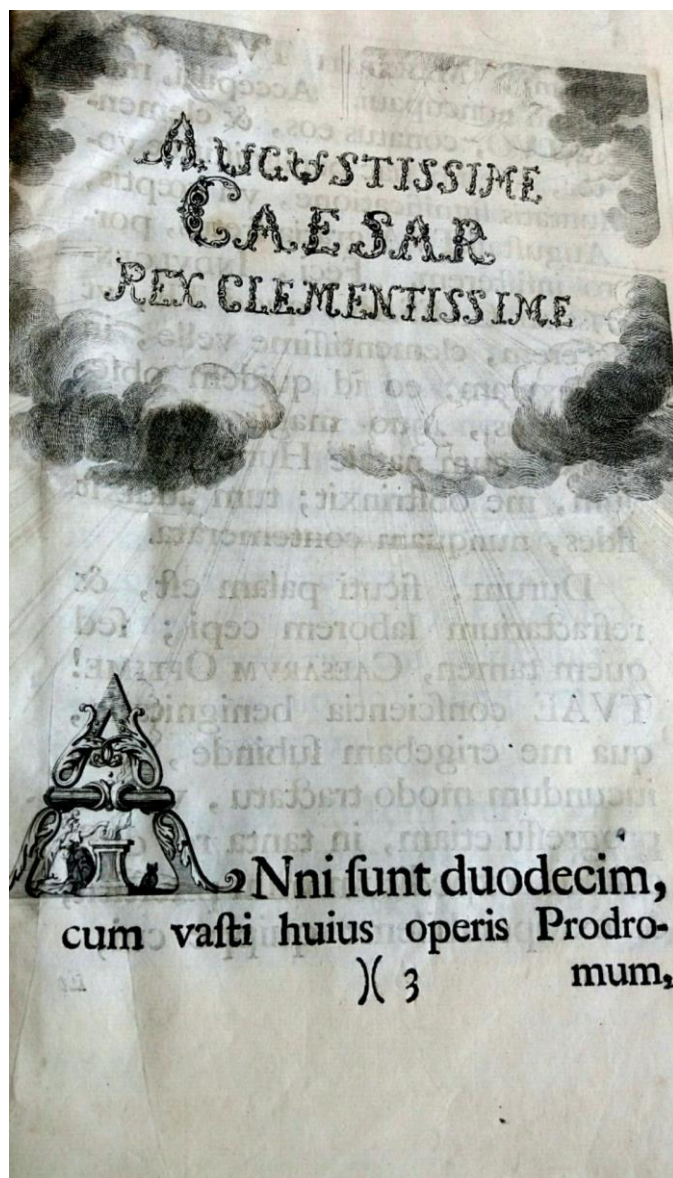 AUGUSTISSIME
CAESAR
REX CLEMENTISSIME
ANni ſunt duodecim,
cum vaſti huius operis Prodro-
)( 3 mum,